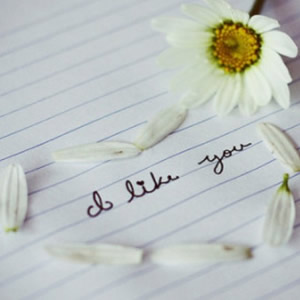 I like you